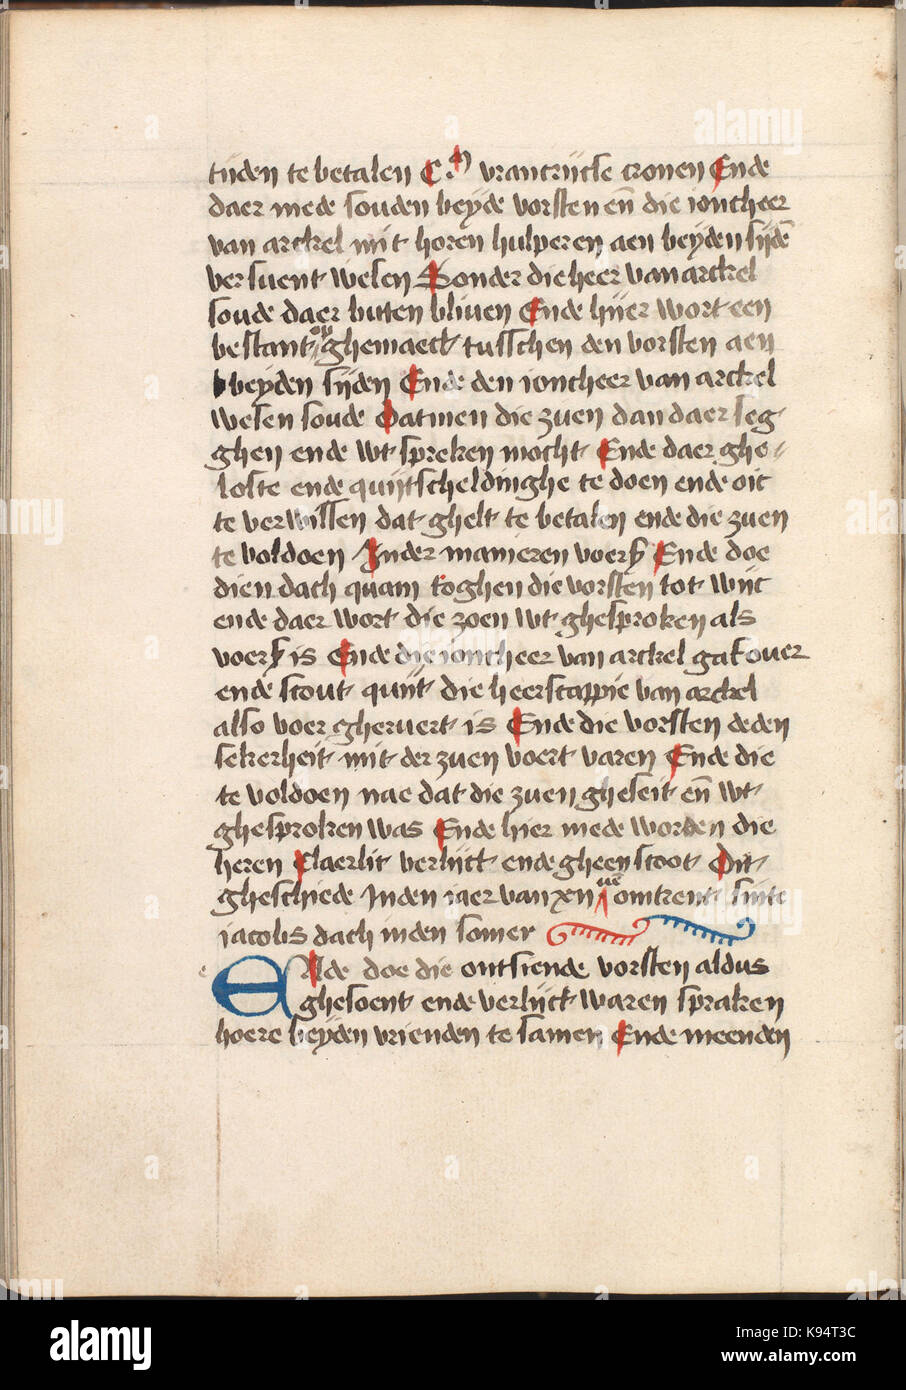 tijden te betalen C.m vrancrijcse cronen Ende
daer mede souden beyde vorsten en̄ die ioncheer
van arckel mit horen hulperen aen beyden sijdē
versuent wesen Sonder die heer van arckel
soude daer buten bliven Ende hijer wort een
bestant ghemaect tusschen den vorsten aen
beyden sijden Ende den ioncheer van arckel
wesen soude Oatmen die zuen dan daer seg
ghen ende wt spreken mocht Ende daer ghe
loste ende quijtscheldinghe te doen ende oic
te verwissen dat ghelt te betalen ende die zuen
te voldoen Inder manieren voers Ende doe
dien dach quam toghen die vorsten tot wijc
ende daer wort die zoen wt ghesproken als
voers is Ende die ioncheer van arckel gafover
ende scout quijt die heerscappie van arckel
also voer gheruert is Ende die vorsten deden
sekerheit mit der zuen voert varen Ende die
te voldoen nae dat die zuen gheseit en̄ wt
ghesproken was Ende hier mede worden die
heren Claerlic verlijct ende gheen scoot Dit
gheschiede Inden iaer van omtrent sinte
jacobs dach inden somer
ENde doe die ontsiende vorsten aldus
ghesoent ende verlijct waren spraken
hoere beyden vrienden te samen Ende meenden
alamy
Image ID: K94T3C
www.alamy.com